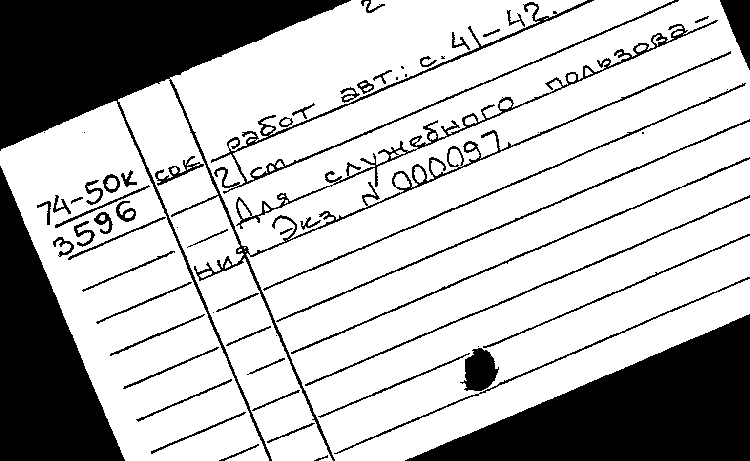 2
работ авт.: с. 41-42.
74-50к сок 21ст.
3596 Для служебного пользова-
ния. Экз. № 000097.